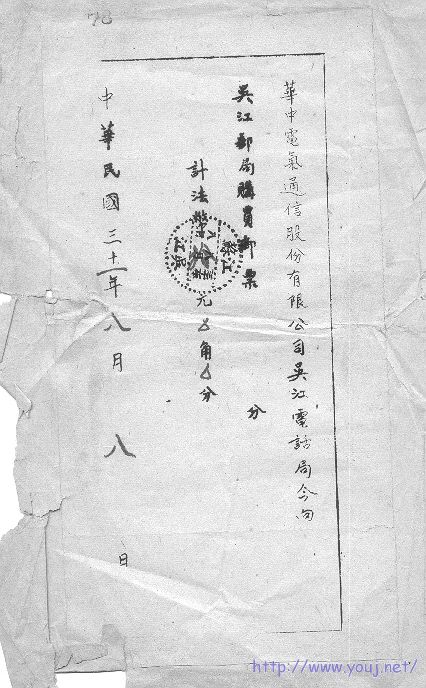 華中電氣通信股份有限公司吳江電話局今向
吳江郵局購買郵票
分
計法幣 元 角 分
中華民國三十一年八月八日
http://www.youj.net/